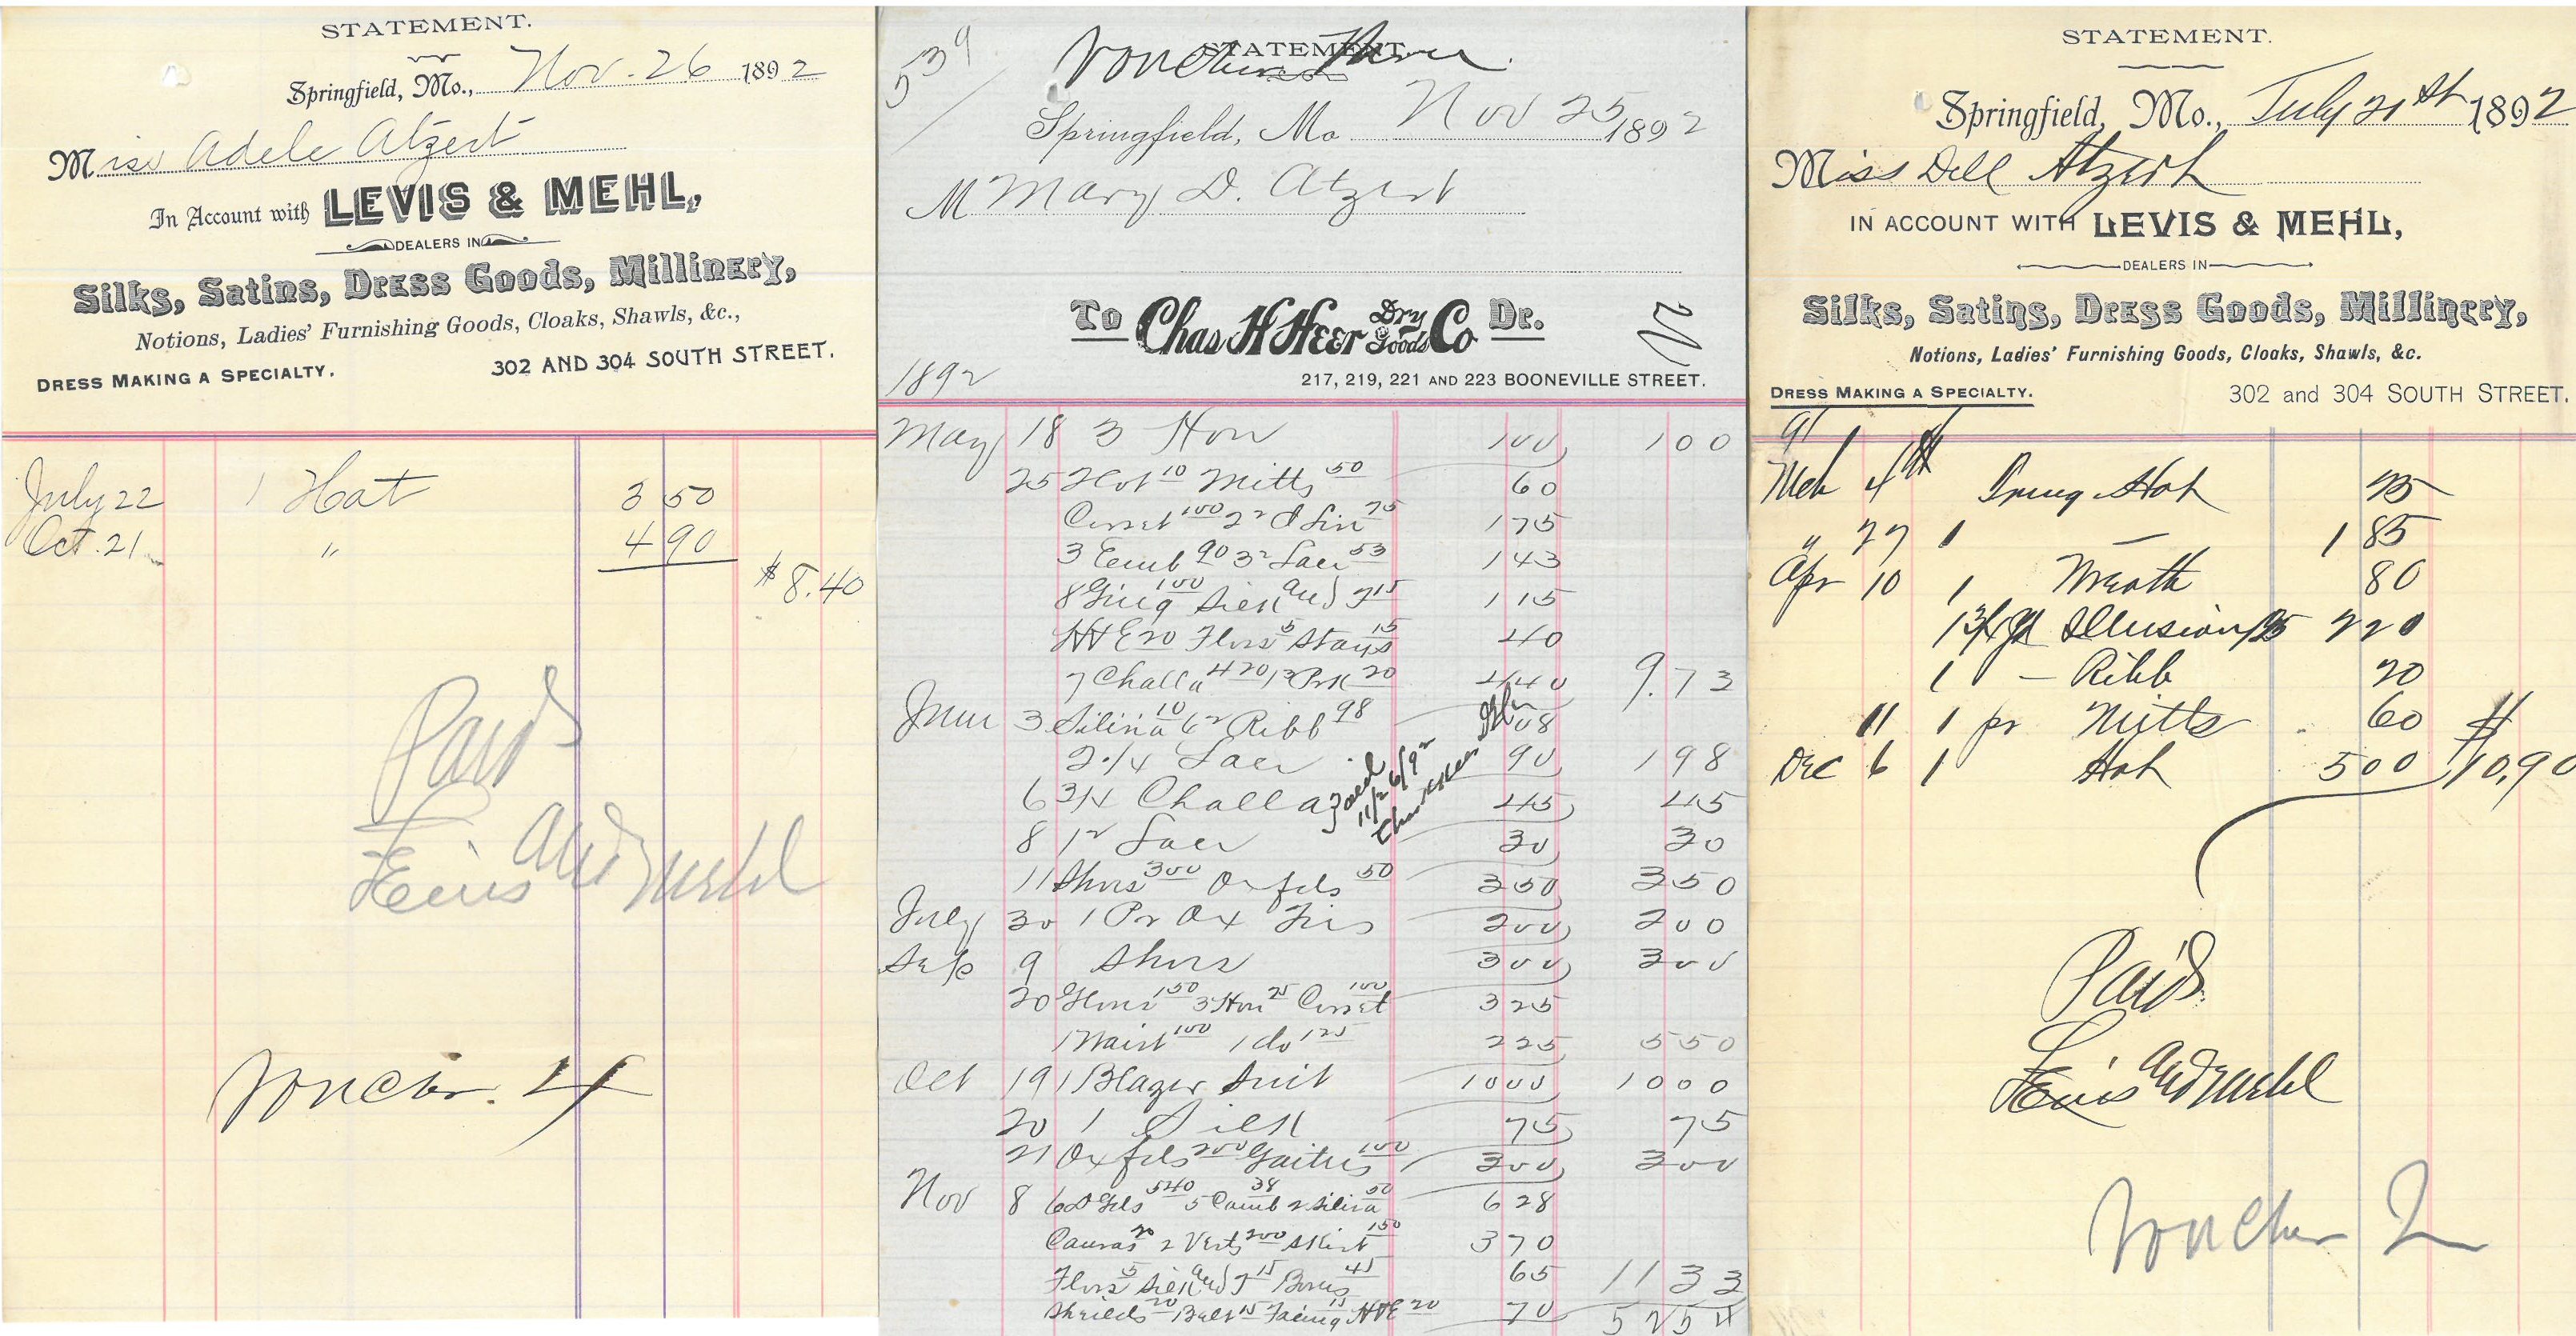 STATEMENT.
Springfield, Mo., Nov. 26 1892
Miss Adele Atzert
In Account with LEVIS & MEHL,
DEALERS IN
Silks, Satins, Dress Goods, Millinery,
Notions, Ladies' Furnishing Goods, Cloaks, Shawls, &c.,
DRESS MAKING A SPECIALTY. 302 AND 304 SOUTH STREET.
July 22 1 Hat 3 50
Oct. 21 " 4 90
$8.40
Paid
Levis and Mehl
Voucher. 4
539
STATEMENT.
Voucher Three
Springfield, Mo Nov 25 1892
M Mary D. Atzert
To Chas H Heer Dry Goods Co Dr.
1892
217, 219, 221 AND 223 BOONEVILLE STREET.
May 18 3 Hose 100 100
25 Hat 10 Mitts 50 60
Corset 100 75 175
3 Emb 90 3 Lace 53 143
8 Ging 100 Silk and T 15 115
HHE 20 Floss 5 Stays 15 40
7 Challa 420 Pck 20 440 9.73
June 3 Silicia 10 6 Ribb 98 108
2 1/4 Lace 90 198
6 3/4 Challa 45 45
Paid 11/26/92
Chas H Heer
8 1 Lace 30 30
11 Shoes 300 Oxfds 50 350 350
July 30 1 Pr Ox Ties 200 200
Sep 9 Shoes 300 300
20 Gloves 150 3 Hose 75 Corset 100 325
1 Waist 100 1 do 125 225 550
Oct 19 1 Blazer Suit 1000 1000
20 1 Silk 75 75
21 Oxfds 200 Gaiters 100 300 300
Nov 8 6 D Gds 540 5 Camb 38 2 Silicia 50 628
Canvas 20 2 Vests 200 Skirt 150 370
Floss 5 Silk and T 15 Bones 45 65 11 33
Shields 20 Belt 15 Facing 15 HHE 20 70 52 54
STATEMENT.
Springfield, Mo., July 21st 1892
Miss Dell Atzert
IN ACCOUNT WITH LEVIS & MEHL,
DEALERS IN
Silks, Satins, Dress Goods, Millinery,
Notions, Ladies' Furnishing Goods, Cloaks, Shawls, &c.
DRESS MAKING A SPECIALTY. 302 and 304 SOUTH STREET.
91
Mch 4th Hat 25
" 27 1 — 1 85
Apr 10 1 Wreath 80
1 3/4 yd Illusion 125 2 20
1 — Ribb 20
11 1 pr Mitts 60
Dec 6 1 Hat 5 00 $10.90
Paid.
Levis and Mehl
Voucher 2